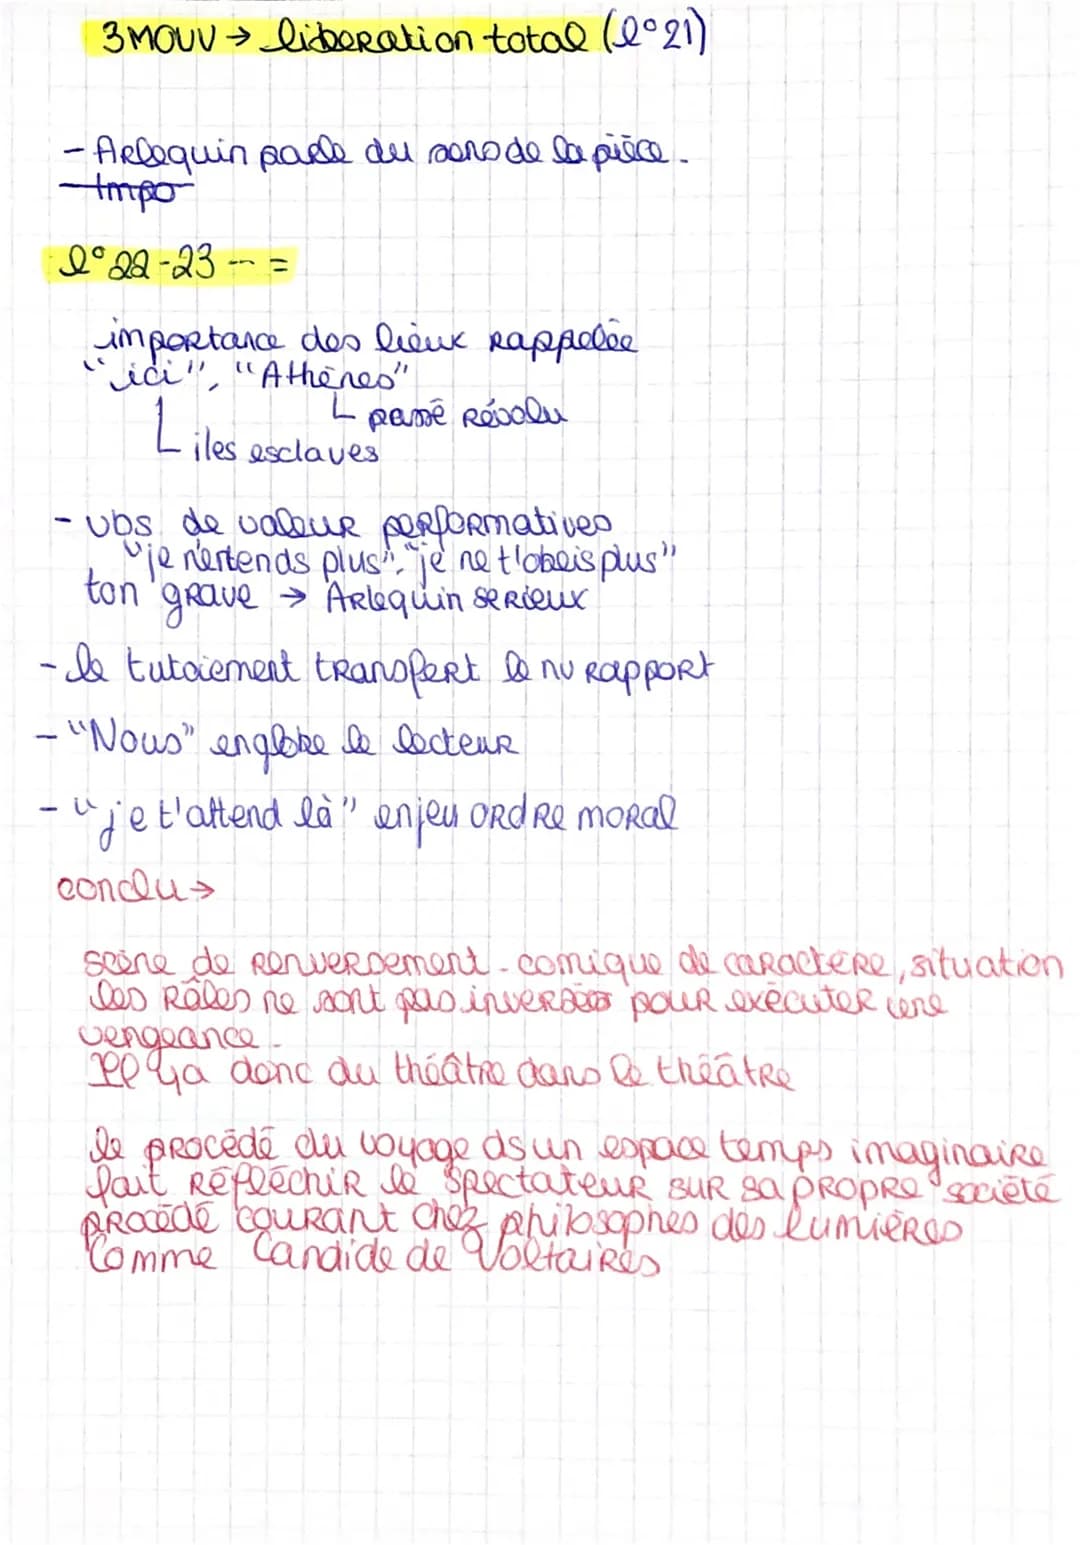 3MOUV → liberation total (l°21)
- Arlequin parle du sens de la pièce.
- Impo
l°22-23 -- =
importance des lieux rappelée
"ici", "Athènes"
└ passé révolu
└ iles esclaves
- vbs de valeur performatives
"je n'entends plus", "je ne t'obeis plus"
ton grave → Arlequin serieux
- le tutoiement transfert le nv rapport
- "Nous" englobe le lecteur
- "je t'attend là" enjeu ordre moral
conclu →
scène de renversement - comique de caractère, situation
les rôles ne sont pas inversés pour exécuter une
vengeance.
Il y a donc du théâtre dans le théâtre
le procédé du voyage ds un espace temps imaginaire
fait réfléchir le spectateur sur sa propre société
procédé courant chez philosophes des lumières
Comme Candide de Voltaires